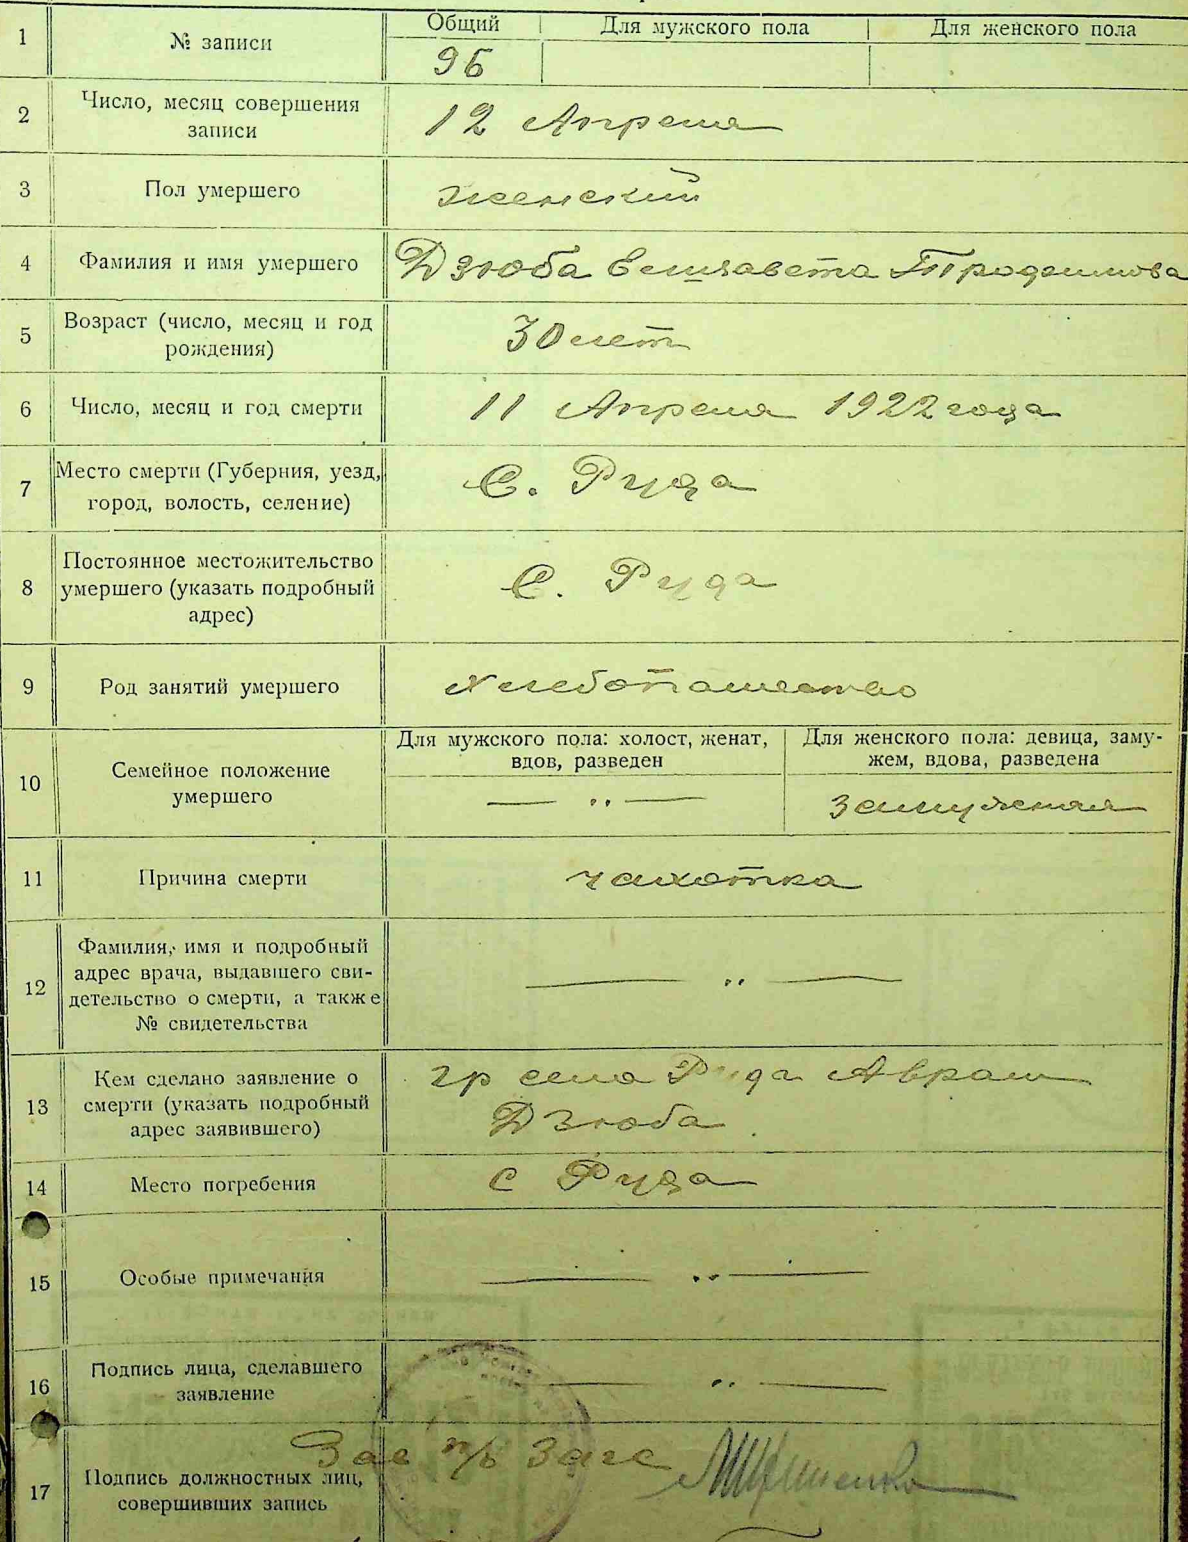 1 № записи Общий Для мужского пола Для женского пола
96
2 Число, месяц совершения
записи
12 Апреля
3 Пол умершего женский
4 Фамилия и имя умершего Дзюба Елизавета Трофимова
5 Возраст (число, месяц и год
рождения)
30 лет
6 Число, месяц и год смерти 11 Апреля 1922 года
7 Место смерти (Губерния, уезд,
город, волость, селение)
С. Руда
8 Постоянное местожительство
умершего (указать подробный
адрес)
С. Руда
9 Род занятий умершего хлебопашество
10 Семейное положение
умершего
Для мужского пола: холост, женат,
вдов, разведен
— „ —
Для женского пола: девица, заму-
жем, вдова, разведена
замужняя
11 Причина смерти чахотка
12 Фамилия, имя и подробный
адрес врача, выдавшего сви-
детельство о смерти, а также
№ свидетельства
— „ —
13 Кем сделано заявление о
смерти (указать подробный
адрес заявившего)
гр села Руда Аврам
Дзюба
14 Место погребения с Руда
15 Особые примечания — „ —
16 Подпись лица, сделавшего
заявление
— „ —
17 Подпись должностных лиц,
совершивших запись
Зав п/б Загс